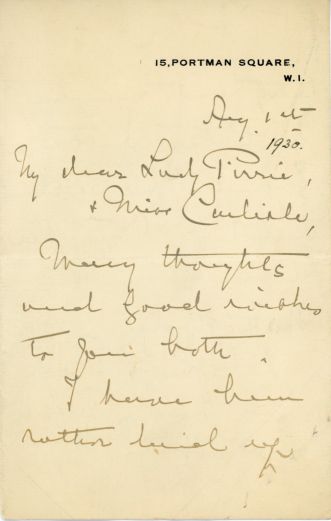 15, PORTMAN SQUARE,
W.1.
Aug. 1st
1930.
My dear Lady Pirrie,
& Miss Carlisle,
Many thoughts
and good wishes
to you both.
I have been
rather laid up